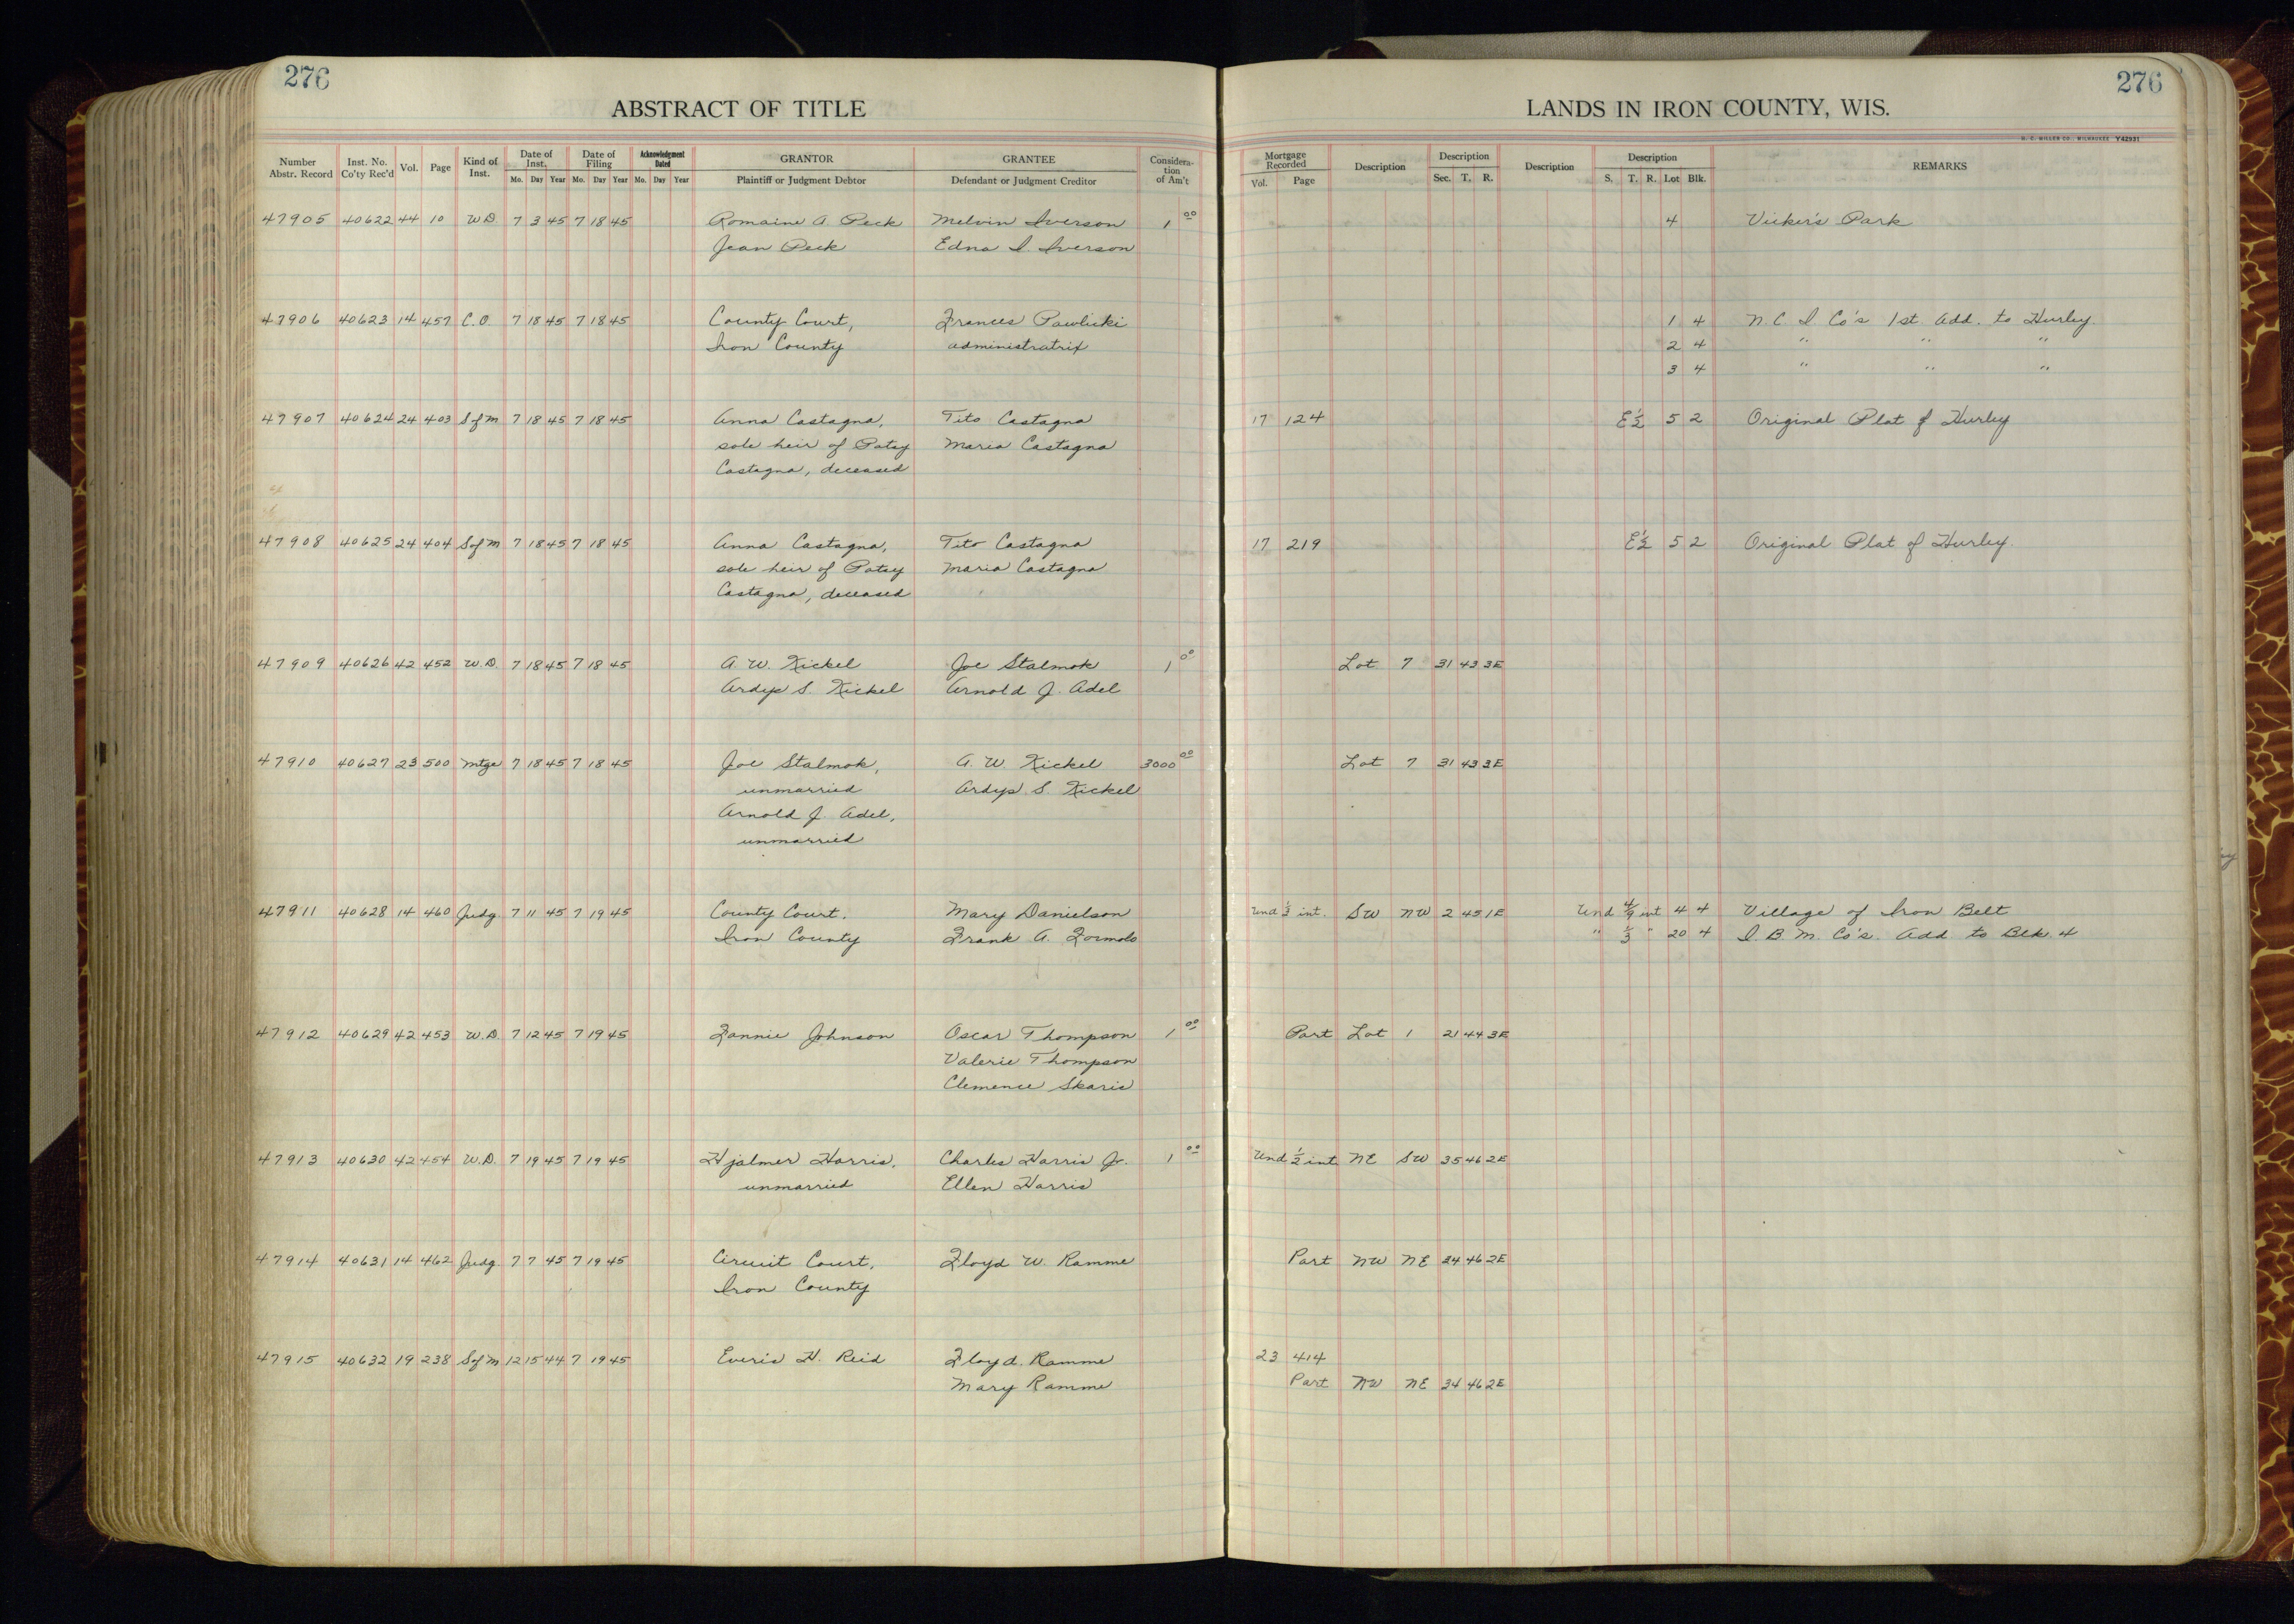 276
276
ABSTRACT OF TITLE
LANDS IN IRON COUNTY, WIS.
H. C. MILLER CO., MILWAUKEE Y42931
Number Abstr. Record Inst. No. Co'ty Rec'd Vol. Page Kind of Inst. Date of Inst. Mo. Day Year Date of Filing Mo. Day Year Acknowledgment Dated Mo. Day Year GRANTOR Plaintiff or Judgment Debtor GRANTEE Defendant or Judgment Creditor Considera-tion of Am't Mortgage Recorded Vol. Page Description Description Sec. T. R. Description Description S. T. R. Lot Blk. REMARKS
47905 40622 44 10 W.D. 7 3 45 7 18 45 Romaine A. Peck Melvin Iverson 1 00 4 Vicker's Park
Jean Peck Edna I. Iverson
47906 40623 14 457 C.O. 7 18 45 7 18 45 County Court, Frances Pawlicki 1 4 N.C. I Co's 1st. Add. to Hurley.
Iron County administratrix 2 4 " " "
3 4 " " "
47907 40624 24 403 S of M 7 18 45 7 18 45 Anna Castagna, Tito Castagna 17 124 E½ 5 2 Original Plat of Hurley
sole heir of Patsy Maria Castagna
Castagna, deceased
47908 40625 24 404 S of M 7 18 45 7 18 45 Anna Castagna, Tito Castagna 17 219 E½ 5 2 Original Plat of Hurley.
sole heir of Patsy Maria Castagna
Castagna, deceased
47909 40626 42 452 W.D. 7 18 45 7 18 45 A. W. Kickel Joe Stalmok 1 00 Lot 7 31 43 3E
Ardys S. Kickel Arnold J. Adel
47910 40627 23 500 Mtge 7 18 45 7 18 45 Joe Stalmok, A. W. Kickel 3000 00 Lot 7 31 43 3E
unmarried Ardys S. Kickel
Arnold J. Adel,
unmarried
47911 40628 14 460 Judg. 7 11 45 7 19 45 County Court, Mary Danielson Und ⅓ int. SW NW 2 45 1E Und 4/9 int 4 4 Village of Iron Belt
Iron County Frank A. Formolo " ⅓ " 20 4 I. B. M. Co's. Add to Blk. 4
47912 40629 42 453 W.D. 7 12 45 7 19 45 Fannie Johnson Oscar Thompson 1 00 Part Lot 1 21 44 3E
Valerie Thompson
Clemence Skaris
47913 40630 42 454 W.D. 7 19 45 7 19 45 Hjalmer Harris, Charles Harris Jr. 1 00 Und ½ int NE SW 35 46 2E
unmarried Ellen Harris
47914 40631 14 462 Judg. 7 7 45 7 19 45 Circuit Court, Floyd W. Ramme Part NW NE 34 46 2E
Iron County
47915 40632 19 238 S of M 12 15 44 7 19 45 Everis H. Reid Floyd Ramme 23 414
Mary Ramme Part NW NE 34 46 2E